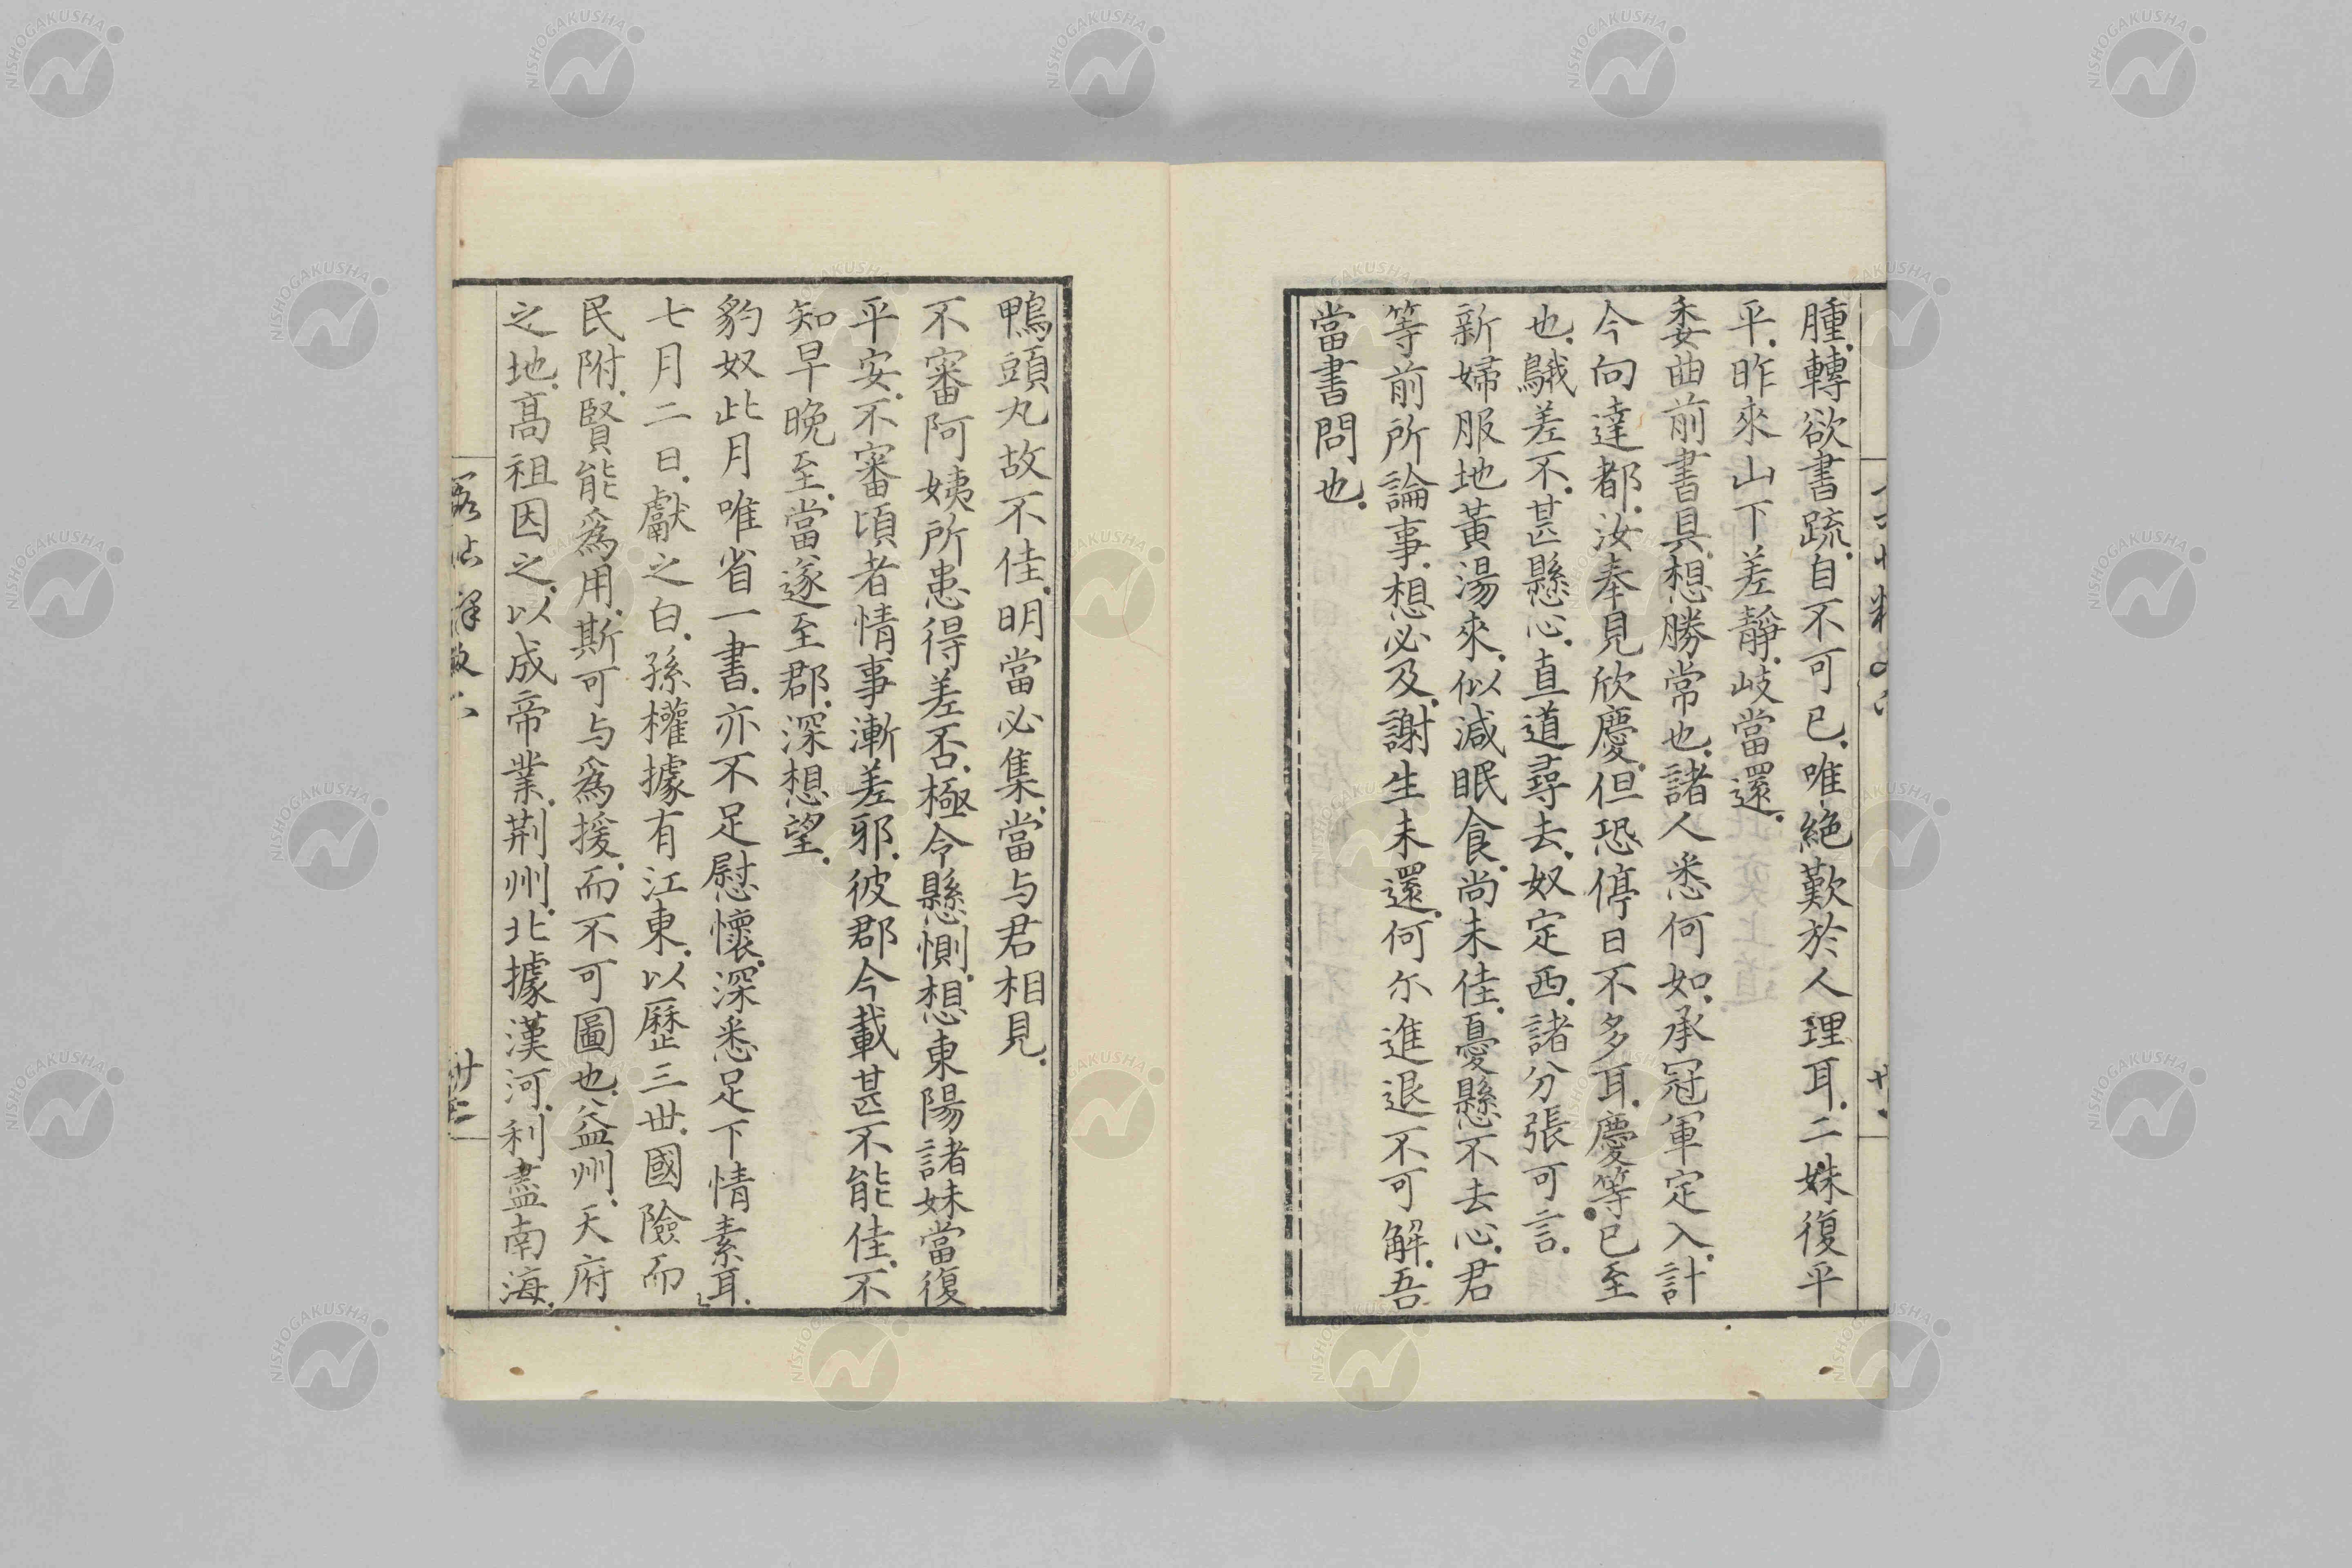 腫.轉欲書疏.自不可已.唯絶歎於人理耳.二姝復平
平.昨來山下差靜.岐當還.
委曲前書具.想勝常也.諸人悉何如.承冠軍定入.計
今向達都.汝奉見欣慶.但恐停日不多耳.慶等.已至
也.鵝差不.甚懸心.直道尋去.奴定西.諸分張可言.
新婦服地黃湯來.似減眠食.尚未佳.憂懸不去心.君
等前所論事.想必及.謝生未還.何尒進退不可解.吾
當書問也.
鴨頭丸故不佳.明當必集.當与君相見.
不審阿姨所患得差否.極令懸惻.想東陽諸妹當復
平安.不審頃者情事漸差邪.彼郡今載甚不能佳.不
知早晚至.當遂至郡.深想望.
豹奴此月唯省一書.亦不足慰懷.深悉足下情素耳.
七月二日.獻之白.孫權據有江東.以歷三世.國險而
民附.賢能爲用.斯可与爲援.而不可圖也.益州.天府
之地.高祖因之.以成帝業.荆州.北據漢河.利盡南海.
NISHOGAKUSHA